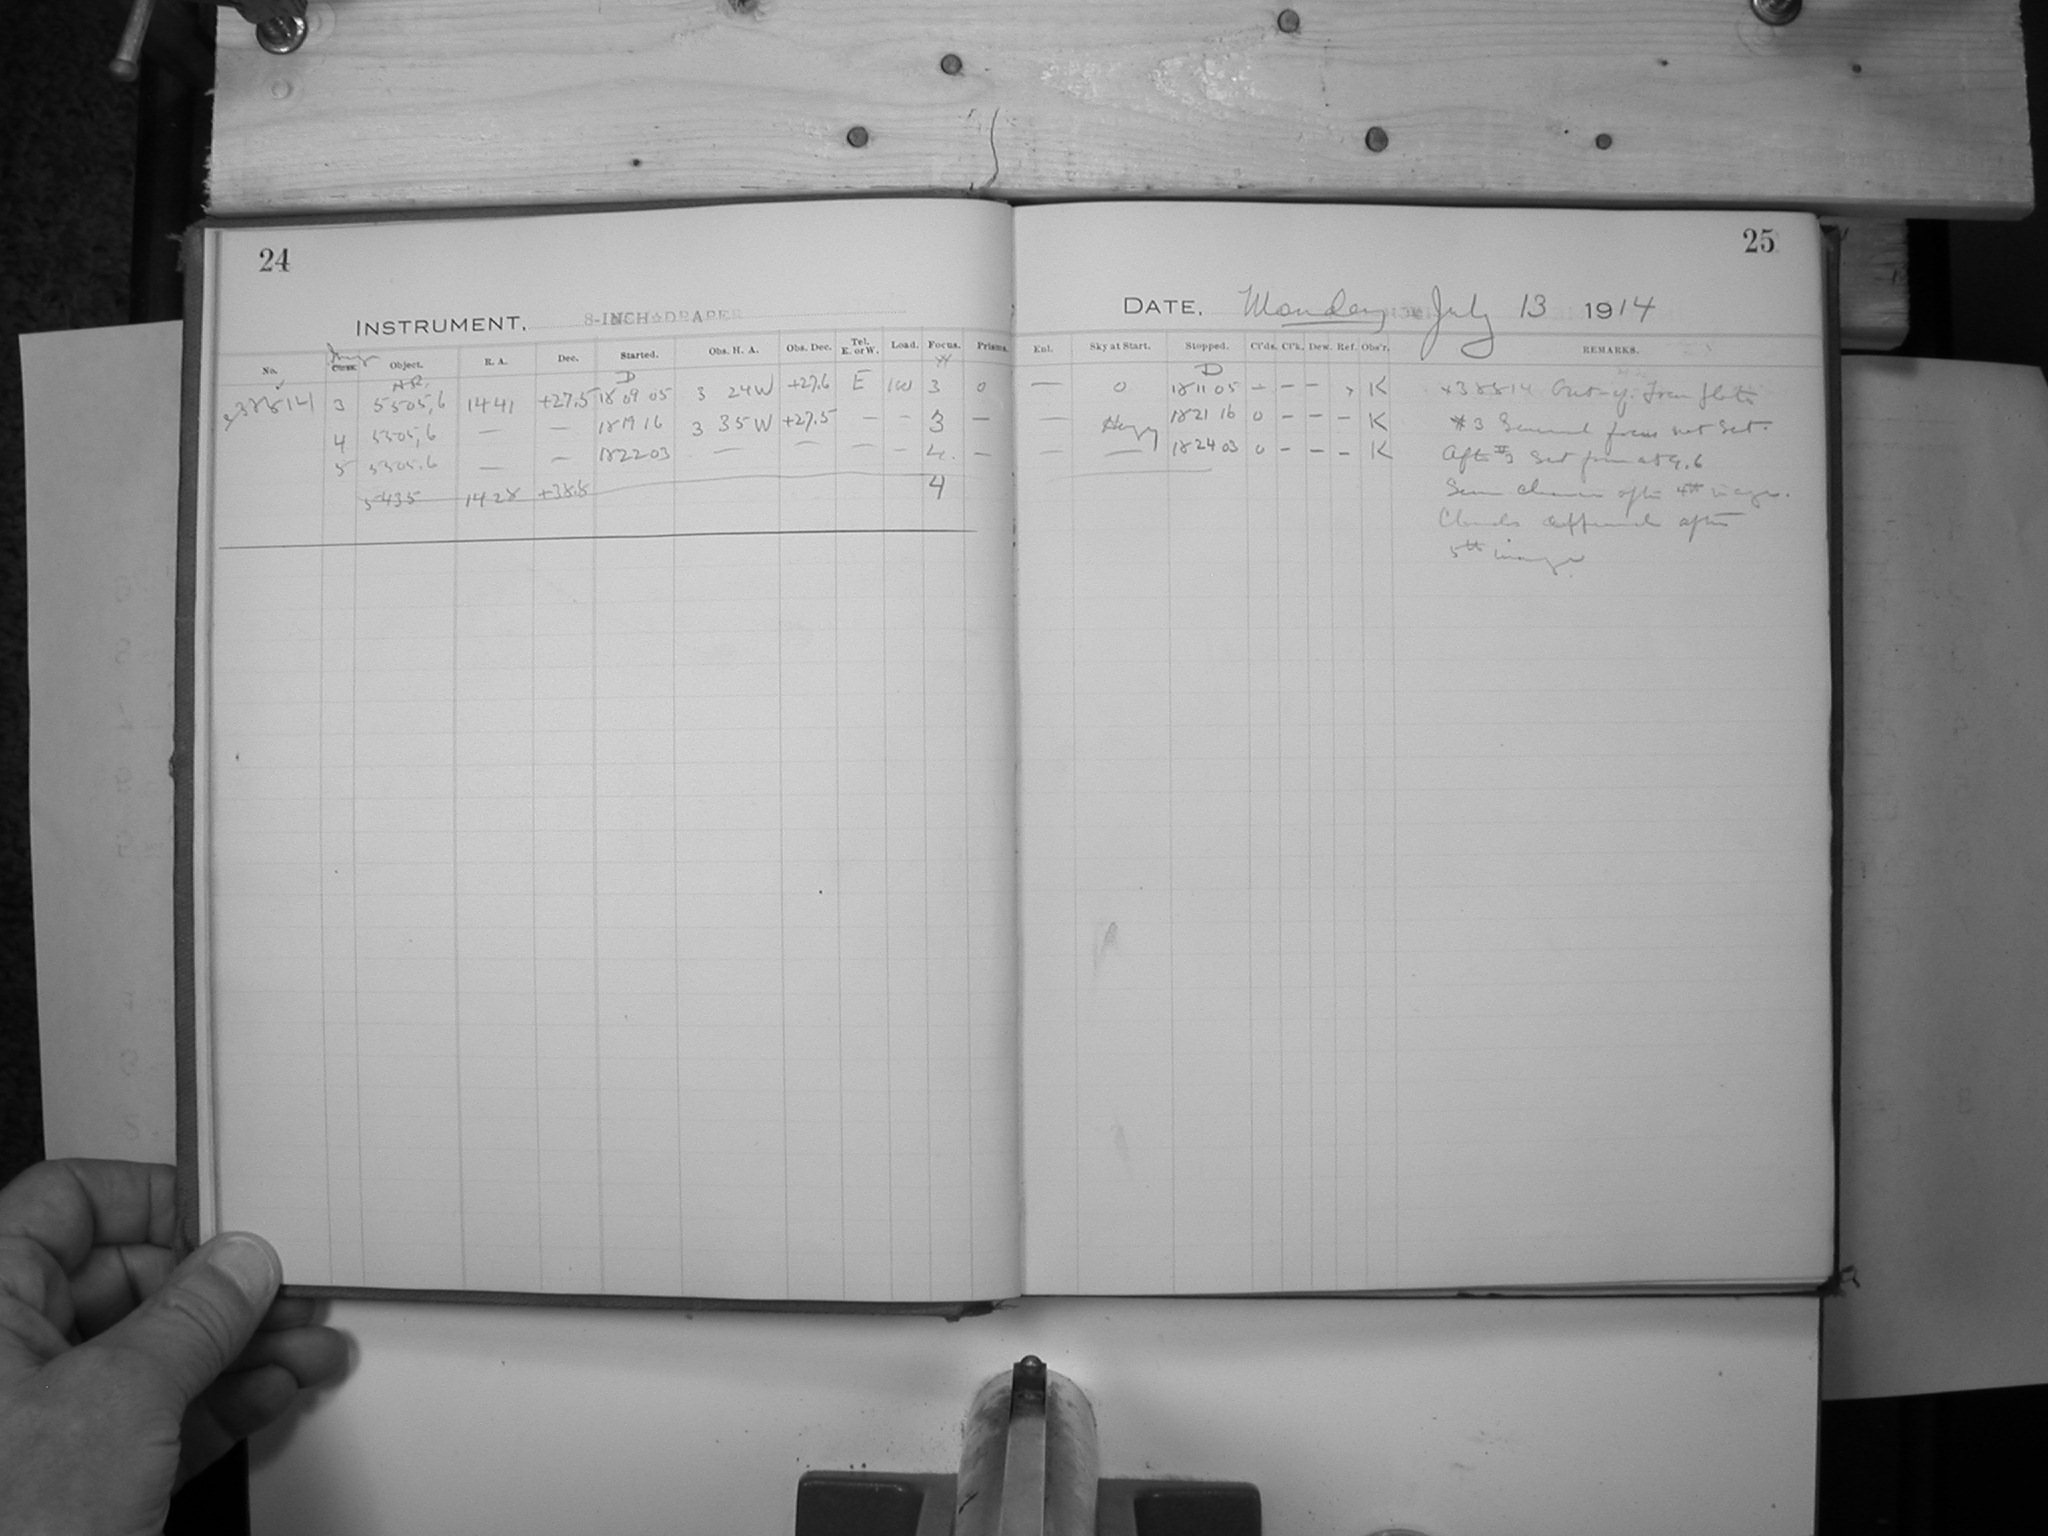 24
25
INSTRUMENT. 8-INCH DRAPER
DATE. Monday July 13 1914
No. Class. Object. R. A. Dec. Started. Obs. H. A. Obs. Dec. Tel. E. or W. Load. Focus. Prisms.
Enl. Sky at Start. Stopped. Cl'ds. Cl'k. Dew. Ref. Obs'r. REMARKS.
H.R. D
D
38814 3 5505,6 1441 +27.5 18 09 05 3 24W +27.6 E 100 3 0
— 0 18 11 05 – – – K 38814 Out of
4 5505,6 — — 18 19 16 3 35W +27.5 — — 3 —
— Hazy 18 21 16 0 – – – K #3 focus not set.
5 5505.6 — — 18 22 03 — — — — 4 —
— — 18 24 03 0 – – – K After #3 set 4.6
5435 1428 +38.8 4
after 4th image.
Clouds after
5th image